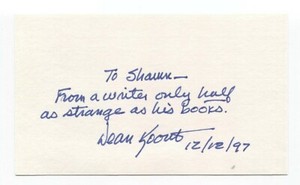 To Shawn—
From a writer only half
as strange as his books.
Dean Koontz
12/12/97